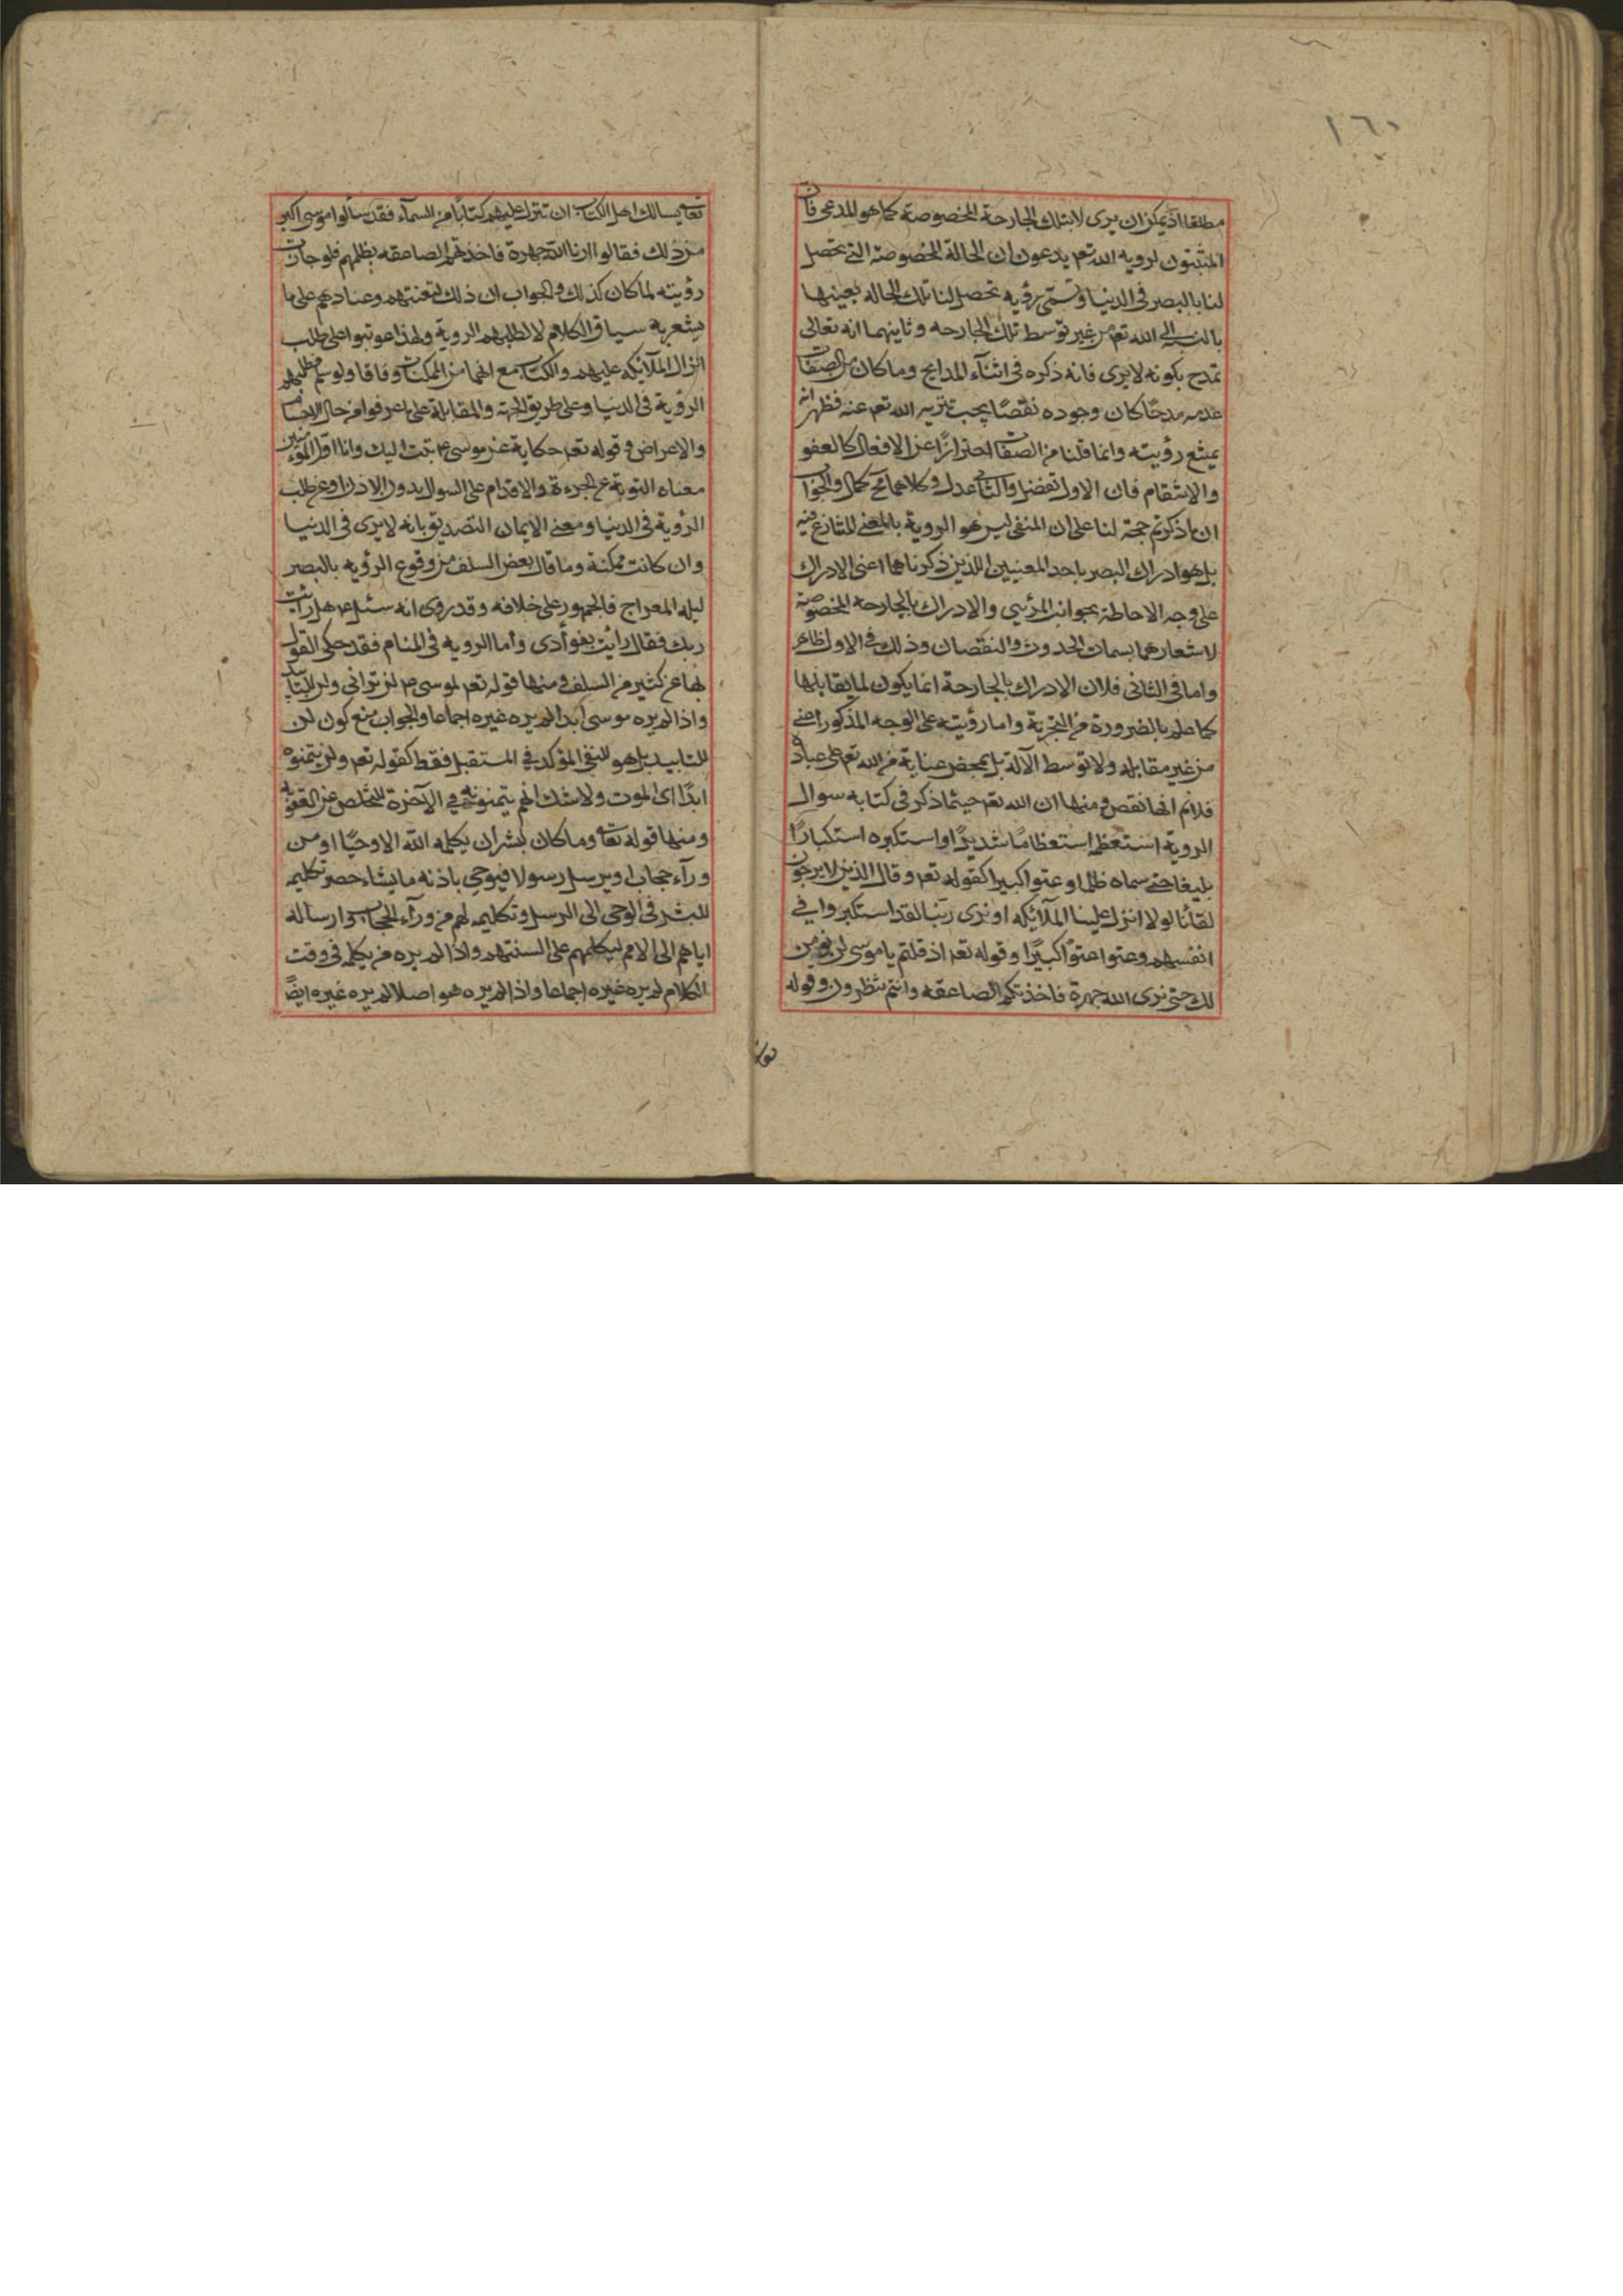 ١٦٠
مطلقا اذ يمكن ان يرى لا بتلك الجارحة المخصوصة كما هو المدعى فان
المثبتون لرويه الله تعم يدعون ان الحالة المخصوصة التي تحصل
لنا بالبصر في الدنيا وتسمى رؤيه تحصل لنا تلك الحاله بعينها
بالنسبة الى الله تعم من غير توسط تلك الجارحه وثانيهما انه تعالى
تمدح بكونه لا يرى فانه ذكره في اثنآء المدايح وما كان من الصفات
عدمه مدحًا كان وجوده نقصًا يجب تنزيه الله تعم عنه فظهر انه
يمتنع رؤيته وانما قلنا من الصفات احترازًا عن الافعال كالعفو
والانتقام فان الاول تفضل والثاني عدل وكلاهما كمال والجواب
ان ما ذكرتم حجة لنا على ان المنفى ليس هو الروية بالمعنى المتنازع فيه
بل هو ادراك البصر باحد المعنيين اللذين ذكرناهما اعنى الادراك
على وجه الاحاطة بجوانب المرئي والادراك بالجارحه المخصوصة
لاشعارهما بسمات الحدوث والنقصان وذلك في الاول ظاهر
واما في الثاني فلان الادراك بالجارحة انما يكون لما يقابلها
كما علم بالضرورة من التجربة واما رؤيته على الوجه المذكور اعني
من غير مقابله ولا توسط الآلة بل بمحض عناية من الله تعم على عباده
فلانم انها نقص ومنها ان الله تعم حيثما ذكر في كتابه سوال
الروية استعظم استعظامًا شديدًا او استكبره استكبارًا
بليغا حتى سماه ظلما وعتوا كبيرا كقوله تعم وقال الذين لا يرجون
لقآنا لولا انزل علينا الملآئكه او نرى ربّنا لقد استكبروا في
انفسهم وعتوا عتوًا كبيرًا وقوله تعم اذ قلتم يا موسى لن نومن
لك حتى نرى الله جهرة فاخذتكم الصاعقه وانتم تنظرون وقوله
تعالى يسالك اهل الكتاب ان تنزل عليهم كتابًا من السمآء فقد سألوا موسى اكبر
من ذلك فقالوا ارنا الله جهرة فاخذتهم الصاعقه بظلمهم فلو جازت
رؤيته لما كان كذلك والجواب ان ذلك لتعنتهم وعنادهم على ما
يشعر به سياق الكلام لا لطلبهم الروية ولهذا عوتبوا على طلب
انزال الملآئكه عليهم والكتاب مع انهما من الممكنات وفاقا ولو سلم فلطلبهم
الرؤية في الدنيا وعلى طريق الجهة والمقابلة على ما عرفوا من حال الاجسام
والاعراض وقوله تعم حكاية عن موسى ع م تبت اليك وانا اول المؤمنين
معناه التوبة عن الجرءة والاقدام على السوال بدون الاذن او عن طلب
الرؤية في الدنيا ومعنى الايمان التصديق بانه لا يرى في الدنيا
وان كانت ممكنة وما قال بعض السلف من وقوع الرؤيه بالبصر
ليله المعراج فالجمهور على خلافه وقد روى انه سئل عم هل رايت
ربك فقال رأيت بفوأدى وأما الرويه في المنام فقد حكى القول
بها عن كثير من السلف ومنها قوله تعم لموسى ع م لن ترانى ولن للتابيد
واذا لم يره موسى ابدا لم يره غيره اجماعا والجواب منع كون لن
للتابيد بل هو للنفى المؤكد في المستقبل فقط كقوله تعم ولن يتمنوه
ابدًا اى الموت ولا شك انهم يتمنونه في الآخرة للتخلص عن العقوبة
ومنها قوله تعالى وما كان لبشر ان يكلمه الله الا وحيًا او من
ورآء حجاب او يرسل رسولا فيوحى باذنه ما يشاء حصر تكليمه
للبشر في الوحى الى الرسل وتكليمه لهم من ورآء الحجاب وارساله
اياهم الى الامم ليكلمهم على السنتهم واذا لم يره من يكلمه في وقت
الكلام لم يره غيره اجماعا واذا لم يره هو اصلا لم يره غيره ايضًا